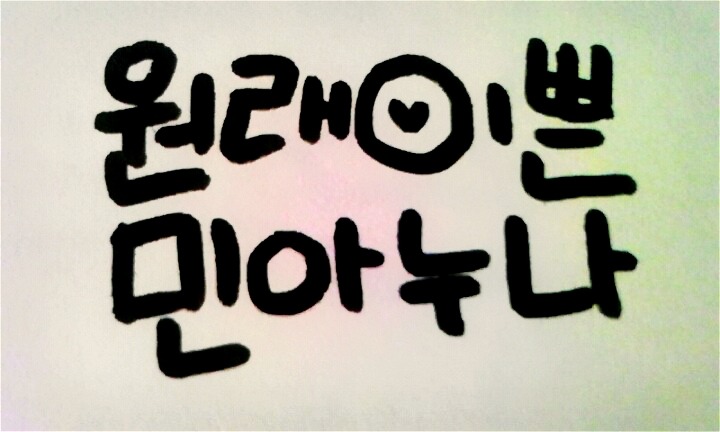 원래이쁜
민아누나